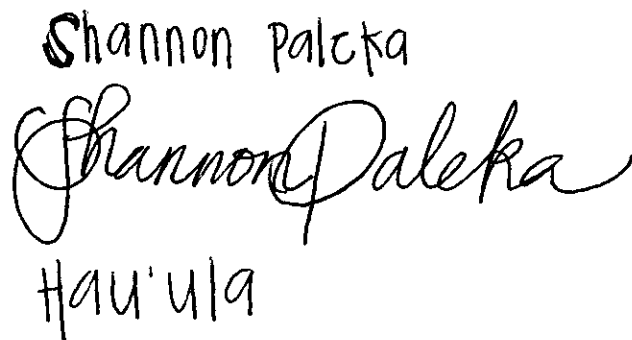 Shannon Paleka
Shannon Paleka
Hau'ula